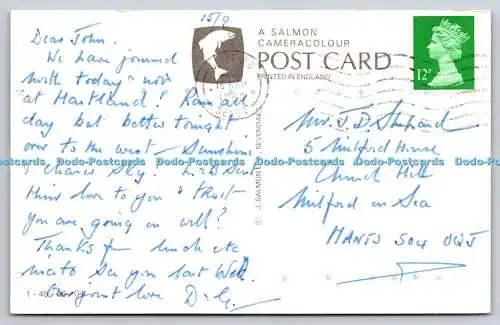 15/9
Dear John.
We have journied
north today & now
at Hartland! Rain all
day but better tonight
over to the west - Sunshine
& clearer Sky.
love to you & trust
you are going on well?
Thanks for lunch etc
nice to see you last Wed.
love D
1 - 49
A SALMON
CAMERACOLOUR
POST CARD
PRINTED IN ENGLAND
© J. SALMON SEVENOAKS
12P
Mr. J D Shepard
5 Milford House
Church Hill
Milford on Sea
HANTS SO4 0QJ
Dodo-Postcards Dodo-Postcards Dodo-Postcards Dodo-Postcards Dodo-Postcards Dodo-Postcards